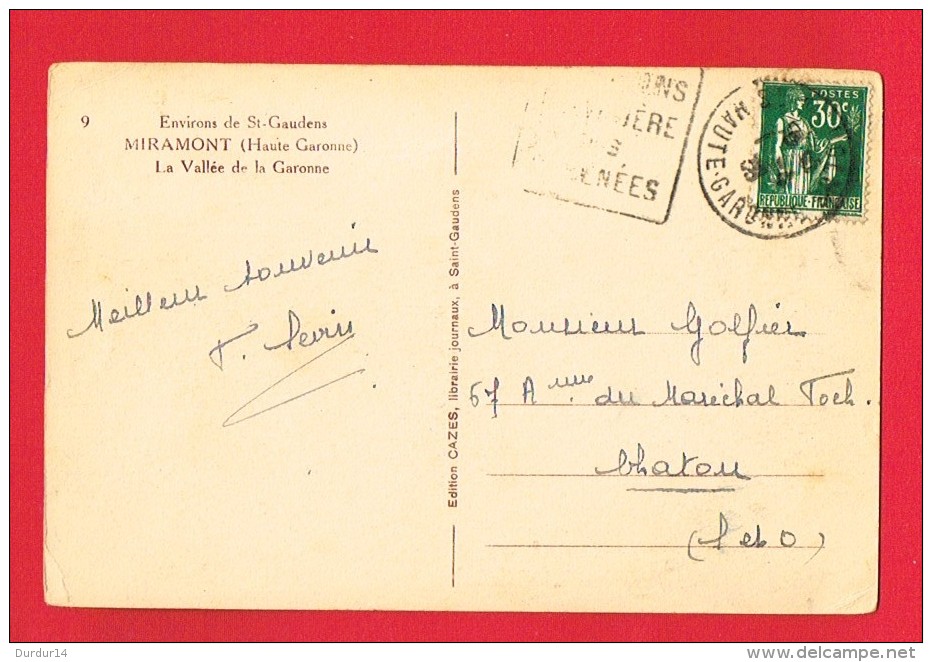 9
Environs de St-Gaudens
MIRAMONT (Haute Garonne)
La Vallée de la Garonne
Meilleur souvenir
Edition CAZES, librairie journaux, à Saint-Gaudens
ÈRE
ÉNÉES
HAUTE-GARONNE
POSTES
30c
RÉPUBLIQUE-FRANÇAISE
Monsieur Golfier
67 Anue du Maréchal Foch.
Chatou
(S et O)
Durdur14
www.delcampe.net